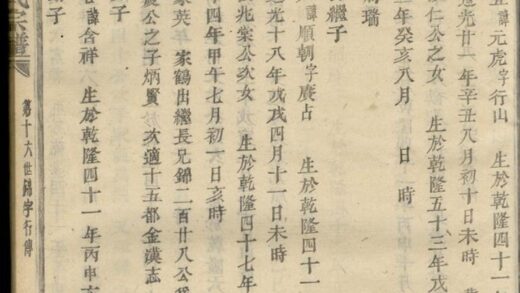 五諱元虎字行山 生於乾隆四十一
道光廿一年辛丑八月初十日未時
仁公之女 生於乾隆五十三年戊
年癸亥八月 日 時
瑞
繼子
諱順朝字廣占 生於乾隆四十一
道光十八年戊戌四月十一日未時
兆棠公次女 生於乾隆四十七年
十四年甲午七月初一日亥時
家英 家鶴出繼長兄錦二百廿八公
公之子炳賢 次適十五部金漢志
子
諱含祥 生於乾隆四十一年丙申
子
第十六世錦字行傳
氏宗譜